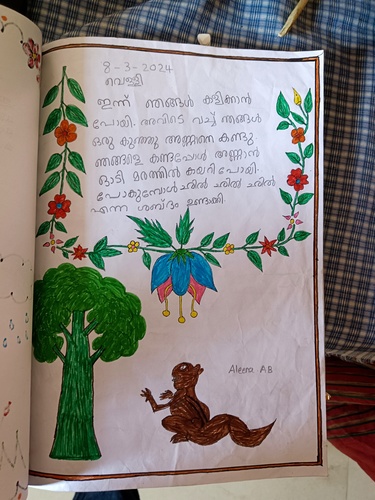 8-3-2024
വെള്ളി
ഇന്ന് ഞങ്ങൾ കളിക്കാൻ
പോയി. അവിടെ വച്ച് ഞങ്ങൾ
ഒരു കുഞ്ഞു അണ്ണാനെ കണ്ടു
ഞങ്ങളെ കണ്ടപ്പോൾ അണ്ണാൻ
ഓടി മരത്തിൽ കയറി പോയി.
പോകുമ്പോൾ ചിൽ ചിൽ ചിൽ
എന്ന ശബ്ദം ഉണ്ടാക്കി.
Aleena A.B